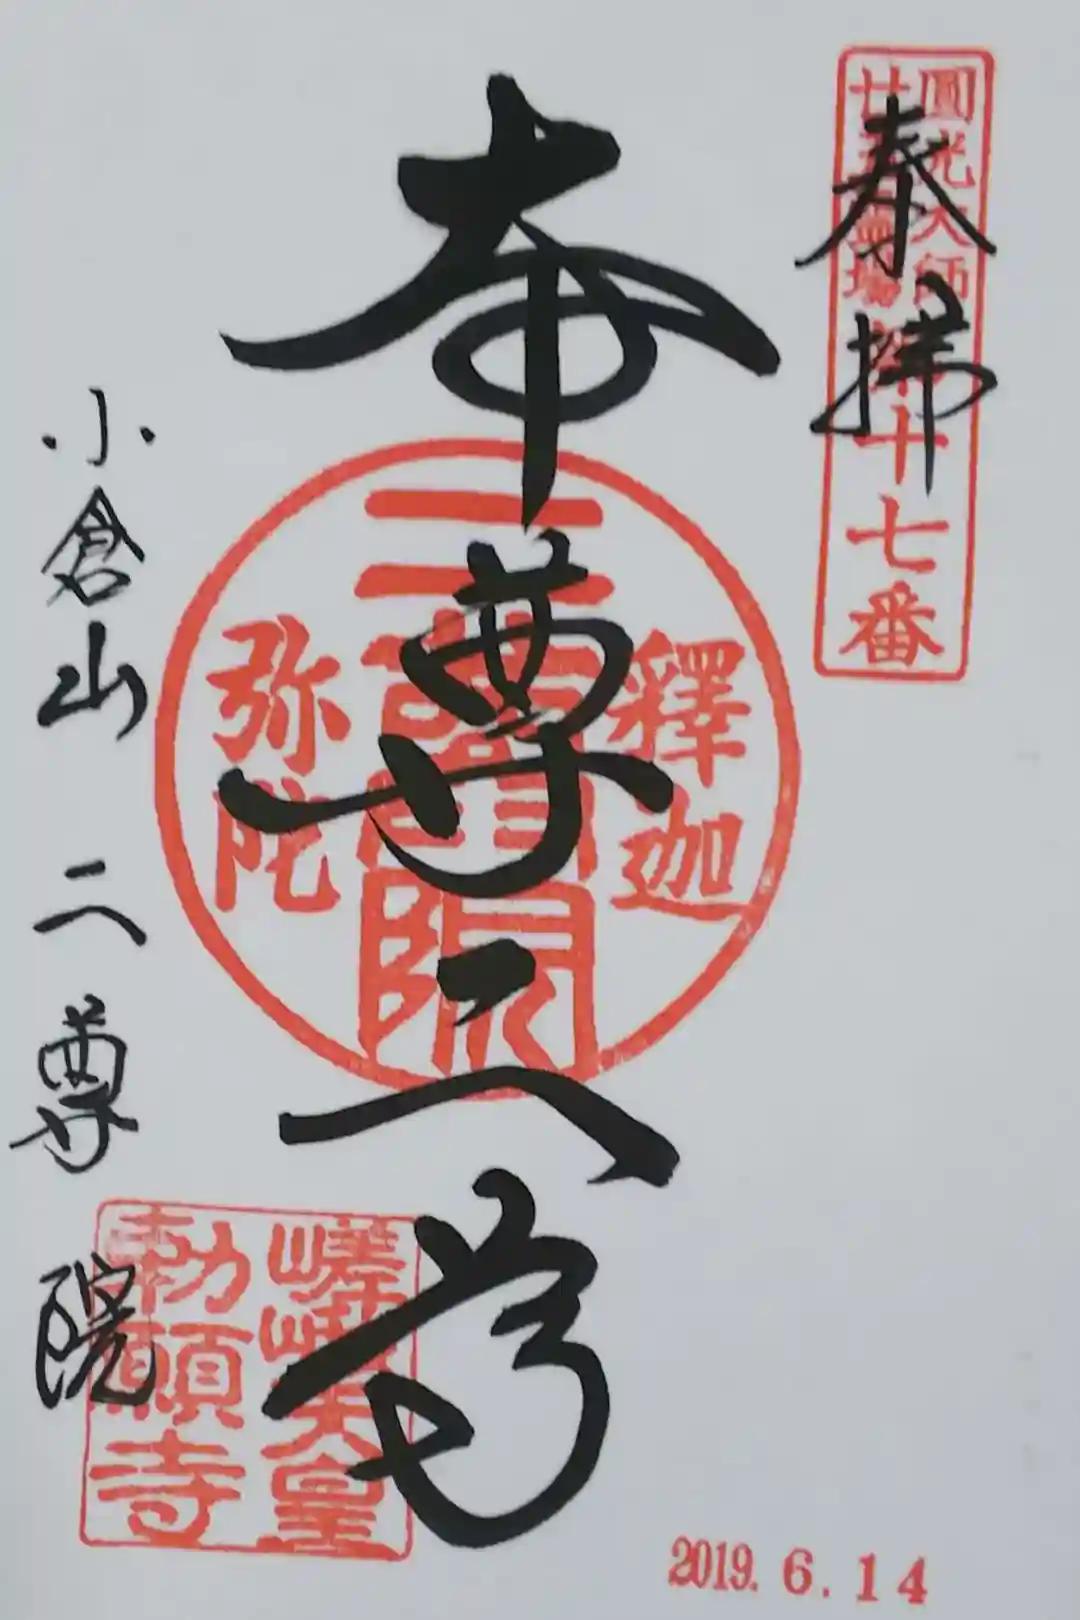 奉拝
圓光大師
廿五霊場第十七番
本尊二尊
釋迦
二尊院
弥陀
小倉山 二尊院
嵯峨天皇
勅願寺
2019.6.14